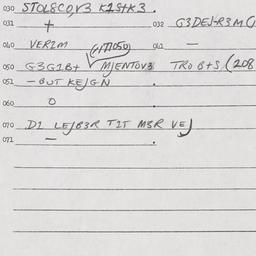 030 STOL8CO,V3 K1S+K3 .
031 + . 032 G3DEJ+R3M(
040 VER1M 041 —
(M1050)
050 G3G1B+ MJENTOV3 TRO B+S (208
051 — BUT KEJGN .
060 O
070 D1 LEJB3R T1T M3R VEJ
071 — .